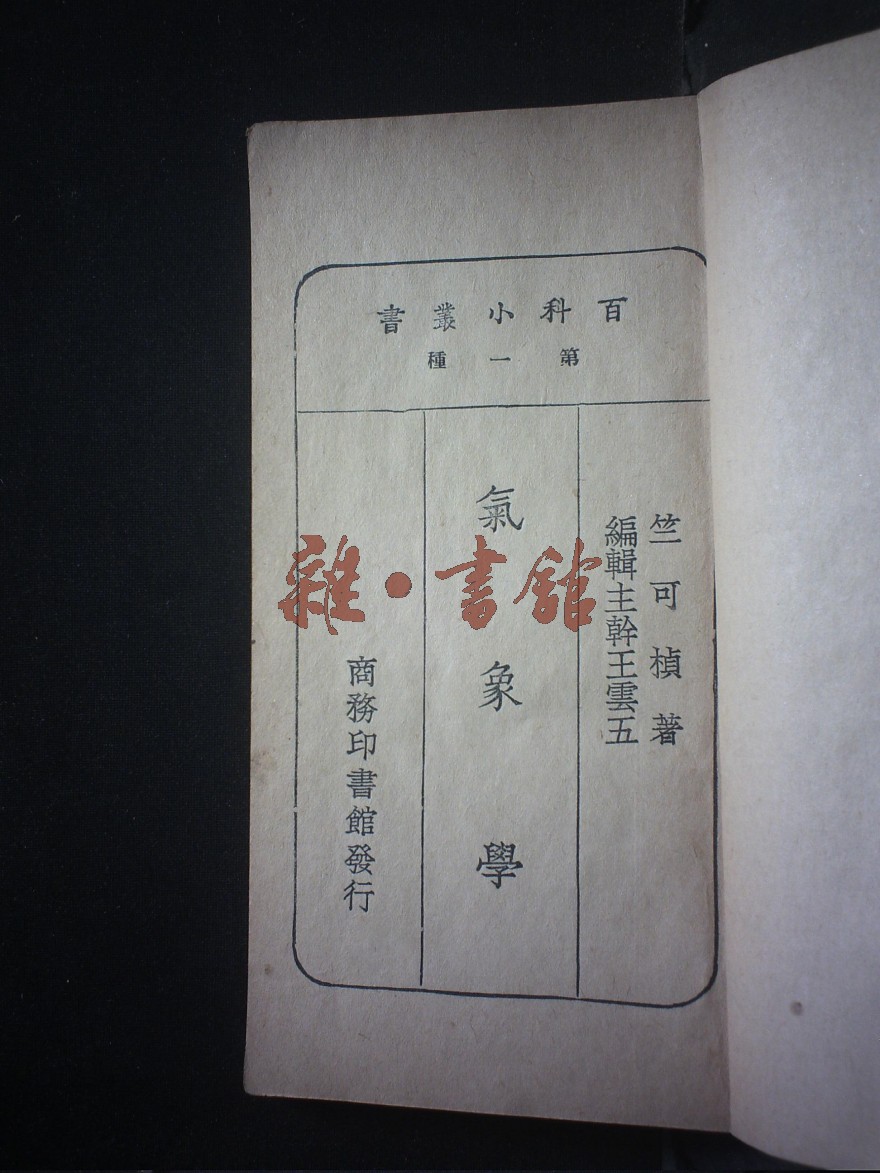 百科小叢書
第一種
竺可楨著
編輯主幹王雲五
氣象學
商務印書館發行
雜·書館